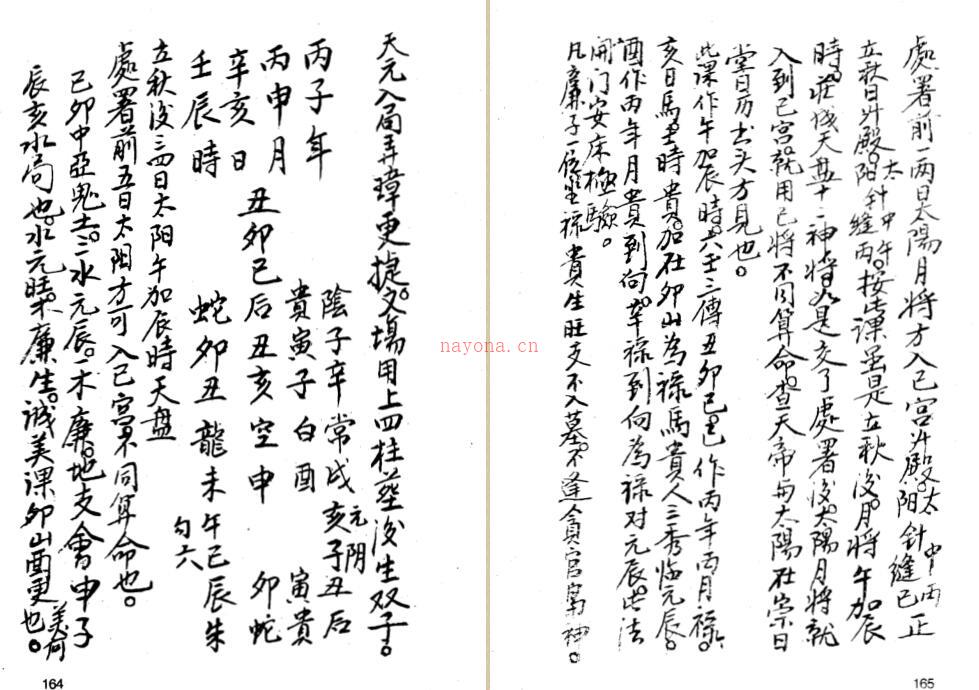 天元入局弄璋更捷。文場用上四柱塟後生双子。
丙子年
丙申月
辛亥日
壬辰時
陰子辛常戌亥元子阴丑后
貴寅子白酉 寅貴
丑卯巳后丑亥空申 卯蛇
蛇卯丑龍未午巳辰朱
勾六
立秋後三四日太阳午加辰時天盘
處署前五日太阳方可入巳宮不同算命也。
己卯中亞鬼土。二水元辰。木廉。地支會申子
辰亥水局也。水元旺。木廉生。誠美課卯山酉更美何也。
164
處署前一两日太陽月將方入巳宮升殿。太阳中針丙縫巳正
立秋日升殿。太阳中針午縫丙。按此課虽是立秋後。月將午加辰
時。莊成天盘十二神將。必是交了處署後。太陽月將就
入到巳宮。就用巳將不同算命。查天帝與太陽在宗日
堂曆書头方見也。
此课作午加辰時。六壬三傳丑卯巳。巳作丙年丙月禄。
亥日馬。壬時貴。加在卯山為禄馬貴人三秀临元辰。
酉作丙年月貴到向。辛禄到向為禄对元辰。此法
開门安床極驗。
凡廉子一位坐禄貴生旺支不入墓。不逢貪官
165
nayona.cn